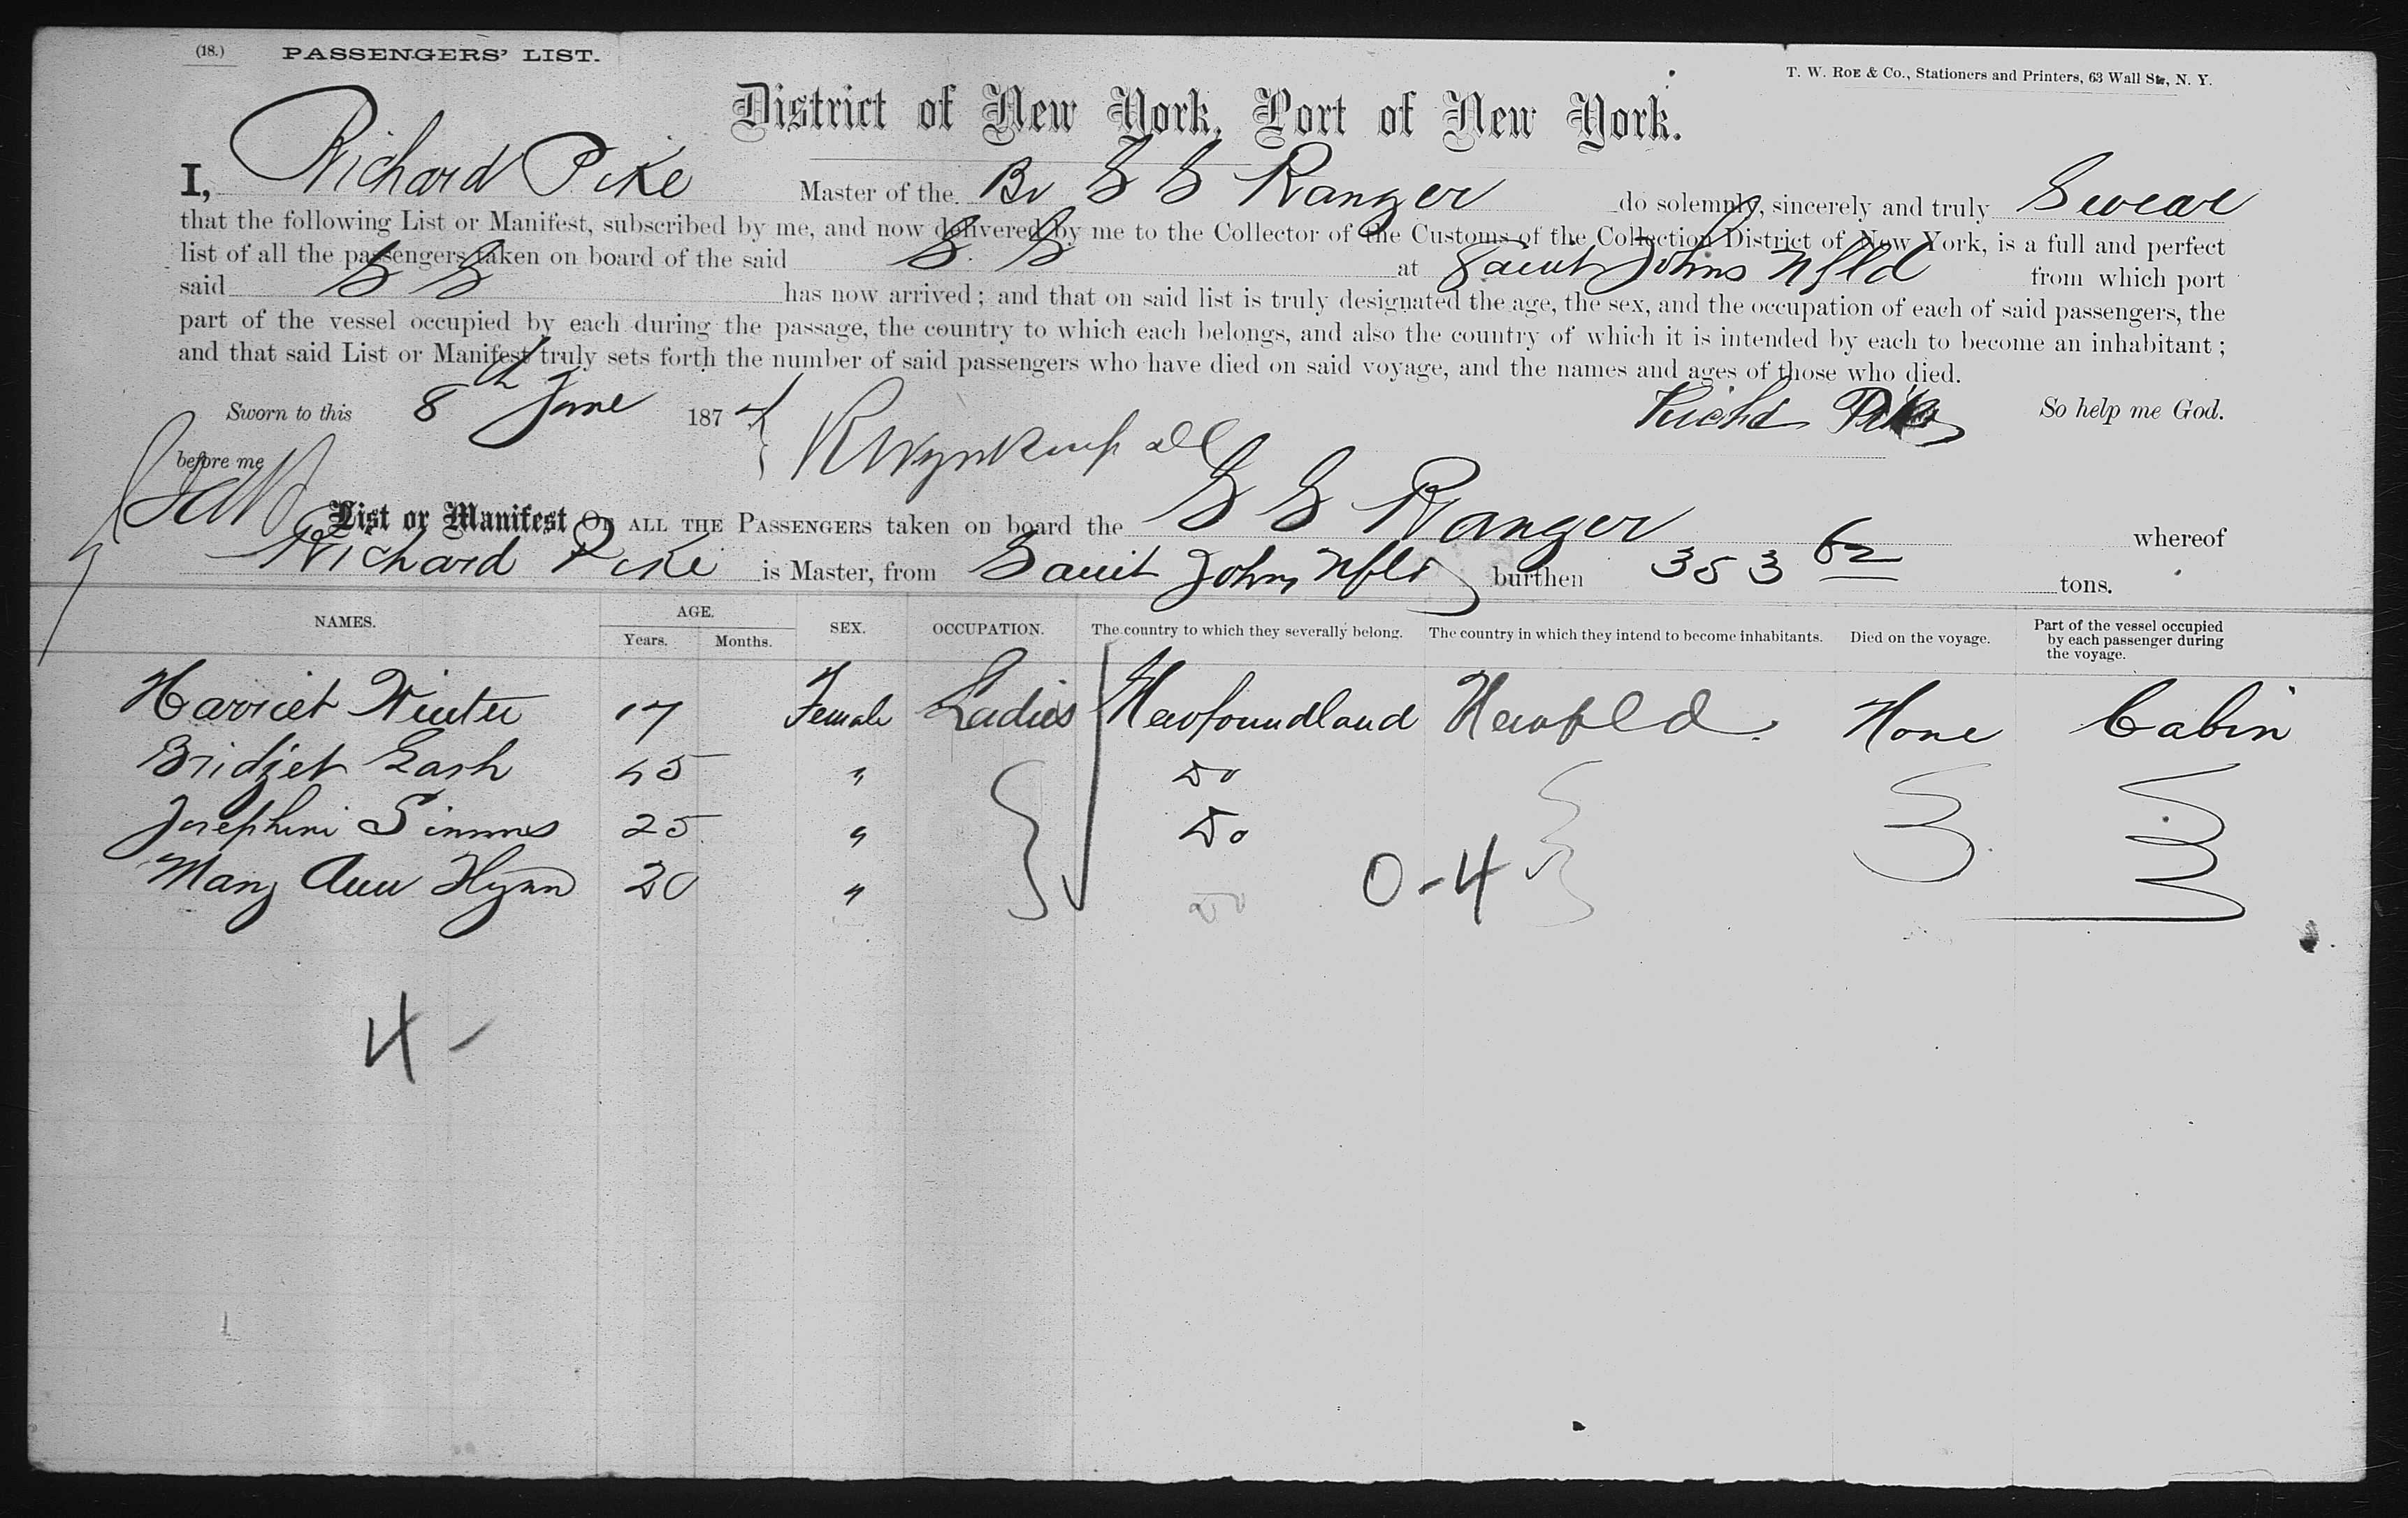 (18.) PASSENGERS' LIST.
T. W. ROE & Co., Stationers and Printers, 63 Wall St., N. Y.
District of New York, Port of New York.
I, Richard Pike Master of the Br S S Ranger do solemnly, sincerely and truly Swear
that the following List or Manifest, subscribed by me, and now delivered by me to the Collector of the Customs of the Collection District of New York, is a full and perfect
list of all the passengers taken on board of the said S. S. at Saint Johns Nfld from which port
said S S has now arrived; and that on said list is truly designated the age, the sex, and the occupation of each of said passengers, the
part of the vessel occupied by each during the passage, the country to which each belongs, and also the country of which it is intended by each to become an inhabitant;
and that said List or Manifest truly sets forth the number of said passengers who have died on said voyage, and the names and ages of those who died.
Sworn to this 8th June 1874 Richd Pike So help me God.
before me
List or Manifest OF ALL THE PASSENGERS taken on board the S S Ranger whereof
Richard Pike is Master, from Saint Johns Nfld burthen 353 62 tons.
NAMES. AGE. SEX. OCCUPATION. The country to which they severally belong. The country in which they intend to become inhabitants. Died on the voyage. Part of the vessel occupied by each passenger during the voyage.
Years. Months.
Harriet Winter 17 Female Ladies Newfoundland Newfld. None Cabin
Bridget 45 " Do
Josephine Simms 25 " Do
Mary Ann Flynn 20 " Do
0-4
4-